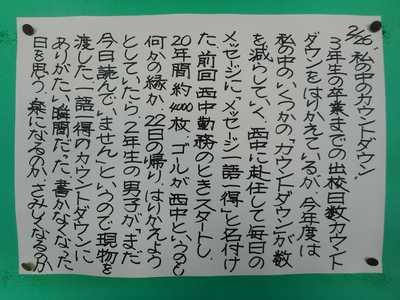 2/26 私の中のカウントダウン
3年生の卒業までの出校日数カウント
ダウンをはりかえているが、今年度は
私の中の、いくつかの「カウントダウン」が数
を減らしていく。西中に赴任して毎日の
メッセージに、メッセージ「一語一得」と名付け
た。前回西中勤務のときスタートし、
20年間約4000枚。ゴールが西中というのも
何かの縁か。22日の帰り、はりかえよう
としていたら、2年生の男子が、「まだ
今日読んでいません」というので現物を
渡した。一語一得のカウントダウンに
ありがたい瞬間だった。書かなくなった
日を思う。楽になるのか、さみしくなるのか